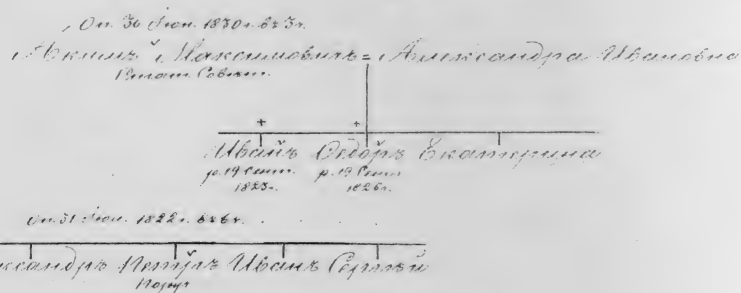 Оп. 30 Іюн. 1830 г. 6 ч 3 г.
Акимъ Максимовичъ = Александра Ивановна
Статс. Совѣтн.
+ +
Иванъ Ѳедоръ Екатерина
р. 19 Сент. р. 19 Сент.
1823 г. 1826 г.
1822 г.
ександръ Петръ Иванъ Сергѣй